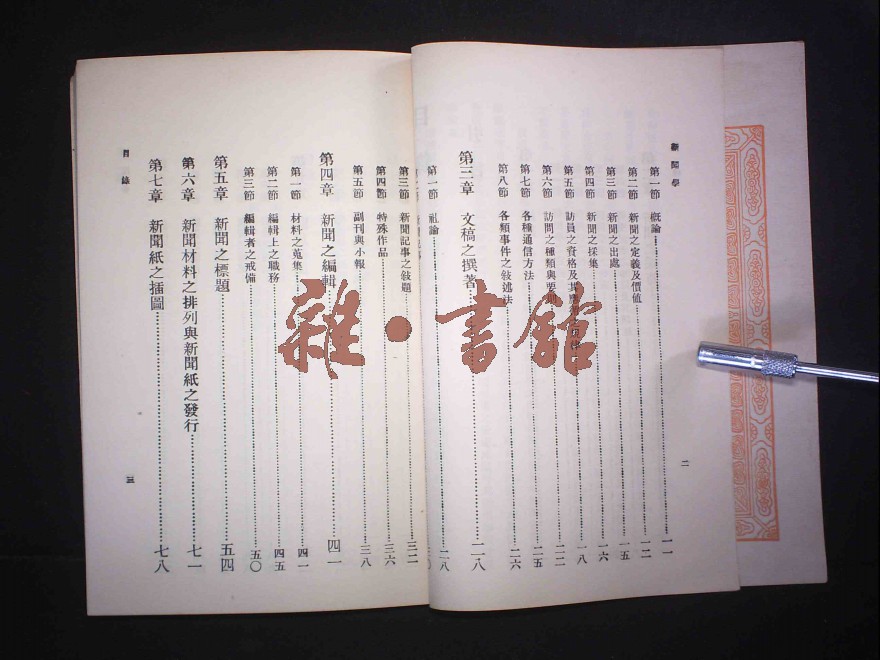 新聞學
二
第一節 概論……一一
第二節 新聞之定義及價值……一二
第三節 新聞之出處……一五
第四節 新聞之採集……一六
第五節 訪員之資格及其……一八
第六節 訪問之種類與要……二二
第七節 各種通信方法……二五
第八節 各類事件之敍述法……二六
第三章 文稿之撰著……二八
第一節 社論……二八
第三節 新聞記事之敍題……三二
第四節 特殊作品……三六
第五節 副刊與小報……三八
第四章 新聞之編輯……四一
第一節 材料之蒐集……四一
第二節 編輯上之職務……四五
第三節 編輯者之戒備……五〇
第五章 新聞之標題……五四
第六章 新聞材料之排列與新聞紙之發行……七一
第七章 新聞紙之插圖……七八
目錄
三
雜·書館